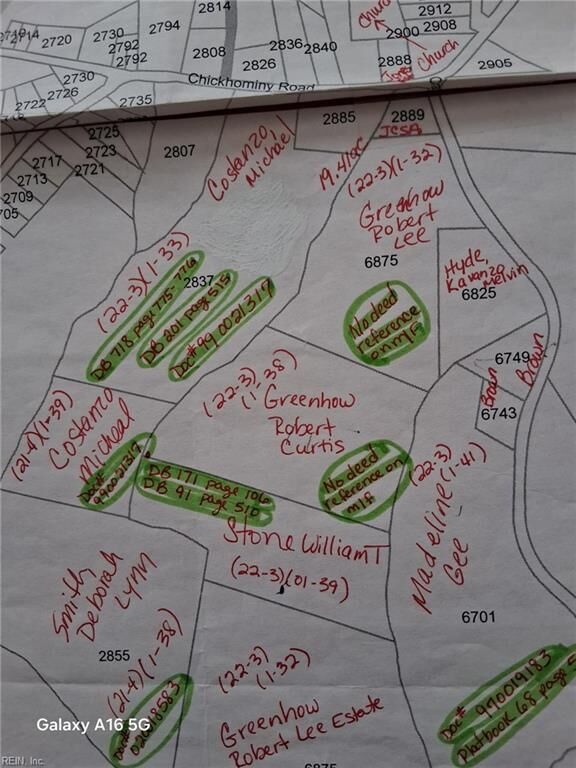 2814
2794
2714
2720
2730
2792
2792
2808
2826
2836
2840
Church
2912
2908
2900
2888
JCSA
Church
2905
Chickhominy Road
2730
2726
2722
2735
2725
2723
2721
2717
2713
2709
2807
2885
2889
JCSA
Costanzo,
Michael
19.41ac
(22-3)(1-32)
Greenhow
Robert
Lee
6875
Hyde,
Kavanzo
Melvin
6825
(22-3)(1-33)
2837
DB 718 page 775-776
DB 201 page 515
Doc# 990021317
No deed
reference
on m/f
6749
Brown
Brown
6743
(21-4)(1-39)
Costanzo
Micheal
Doc#
990021317
(22-3)
(1-38)
Greenhow
Robert
Curtis
No deed
reference on
m/f
DB 171 page 106
DB 91 page 510
(22-3)
(1-41)
Madeline
Gee
Stone William T
(22-3)(01-39)
Smith,
Deborah
Lynn
2855
(21-4)(1-38)
Doc#
6701
(22-3)
(1-32)
Greenhow
Robert Lee Estate
6875
Doc# 990019183
Platbook 68 page
Galaxy A16 5G
REIN, Inc.